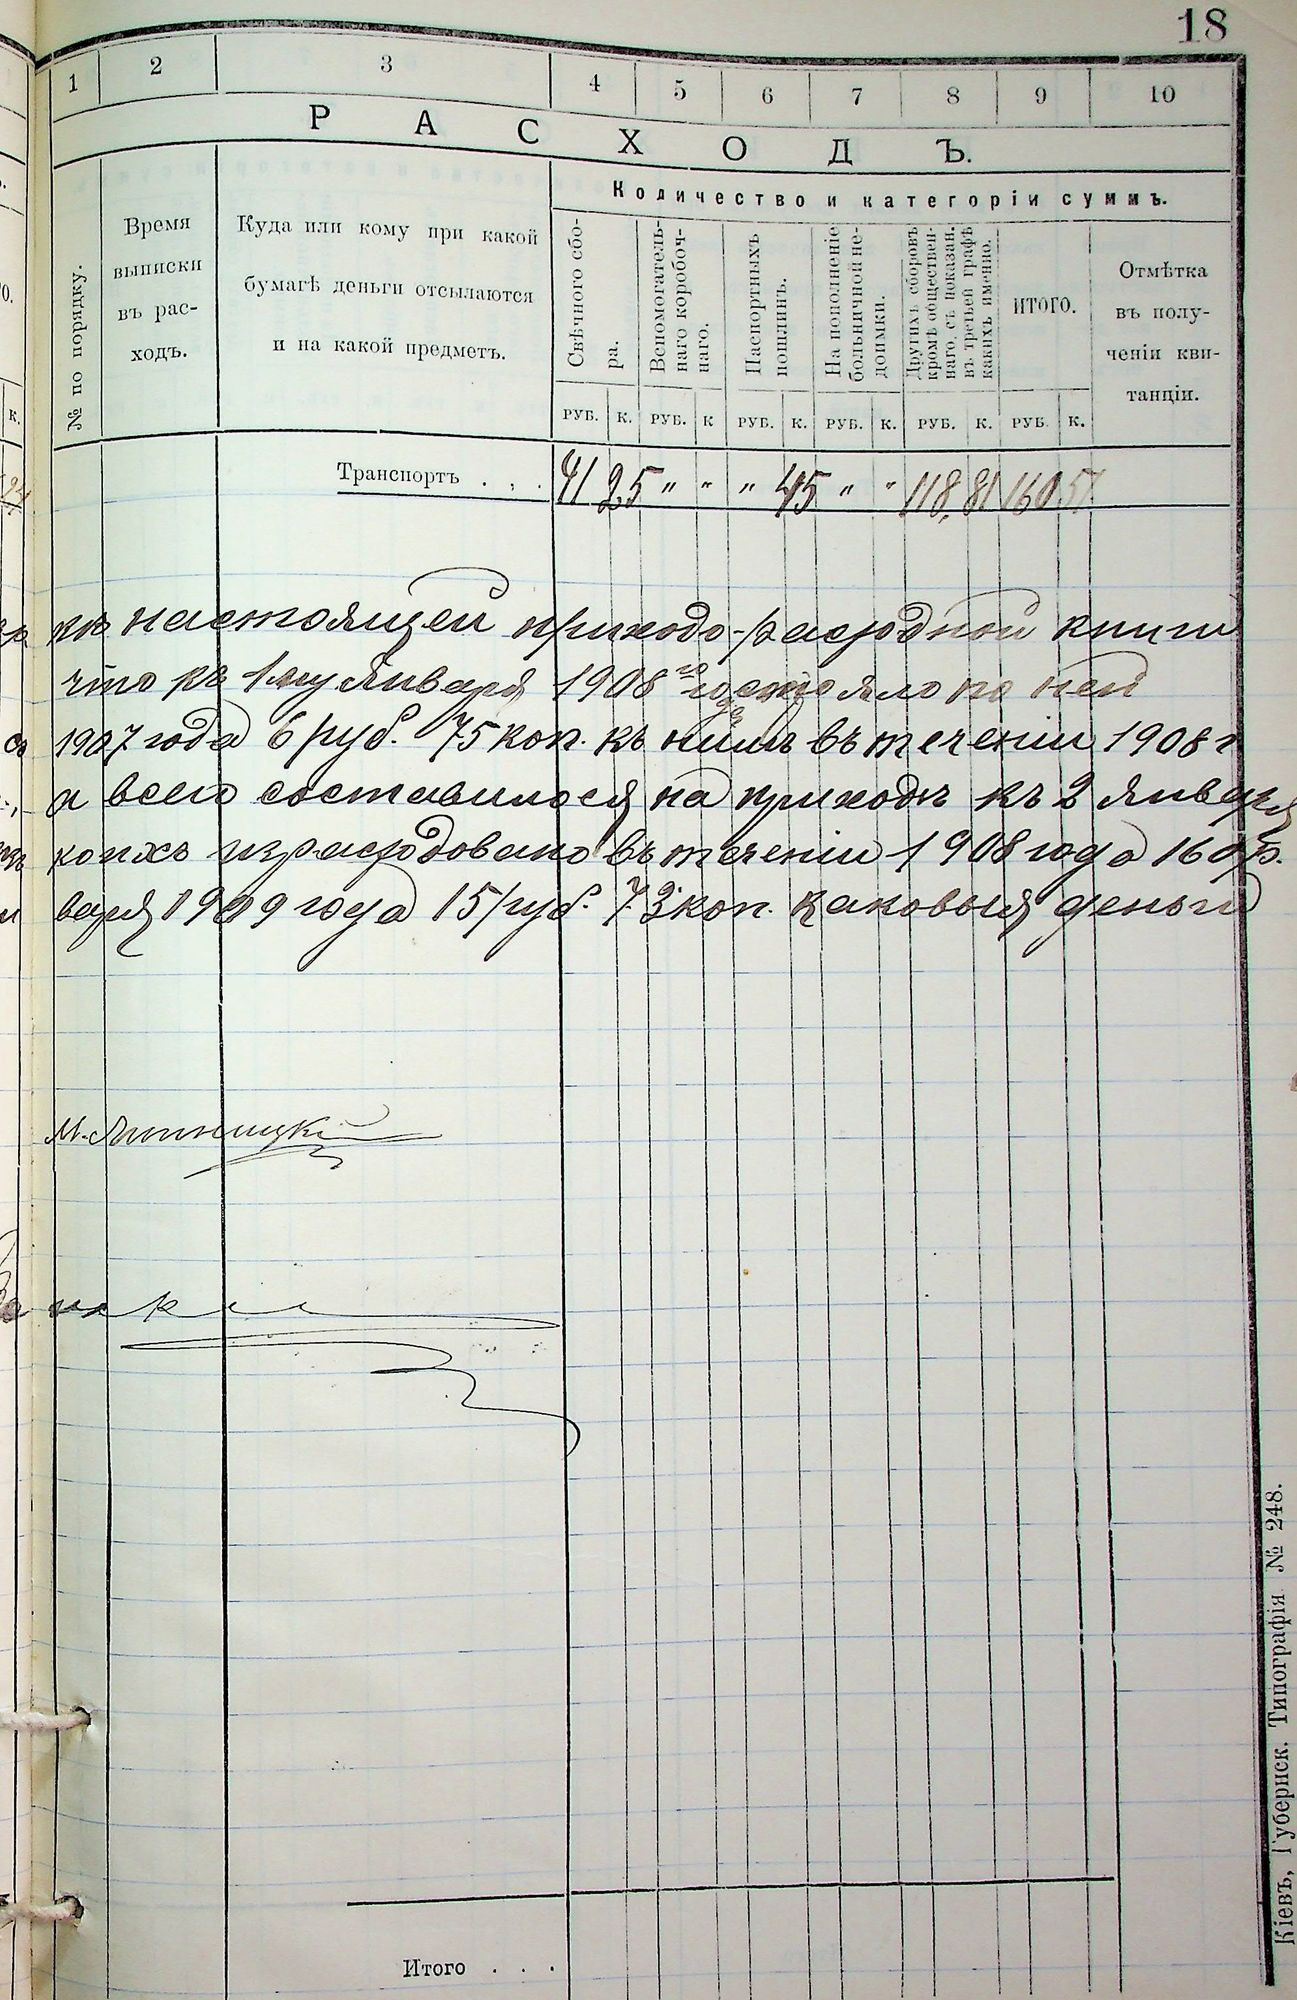 18
1 2 3 4 5 6 7 8 9 10
РАСХОДЪ.
Количество и категоріи суммъ.
№ по порядку.
Время
выписки
въ рас-
ходъ.
Куда или кому при какой
бумагѣ деньги отсылаются
и на какой предметъ.
Свѣчного сбо-
ра.
Вспомогатель-
наго коробоч-
наго.
Паспортныхъ
пошлинъ.
На пополненіе
больничной не-
доимки.
Другихъ сборовъ
кромѣ обществен-
наго, съ показан.
въ третьей графѣ
какихъ именно.
ИТОГО.
Отмѣтка
въ полу-
ченіи кви-
танціи.
РУБ. К. РУБ. К РУБ. К. РУБ. К. РУБ. К. РУБ К.
Транспортъ . . . 41 25 " " " 45 " " 118 81 160 51
къ настоящей приходо-расходной книги
что къ 1му Января 1908 го года состояло по ней
1907 года 6 руб. 75 коп. къ нимъ въ теченіи 1908 г
а всего составилося на приходъ къ 2 Января
копхъ израсходовано въ теченіи 1908 года 160 р.
варя 1909 года 15 руб. 73 коп. каковыя деньги
Итого . . .
Кіевъ, Губернск. Типографія № 248.